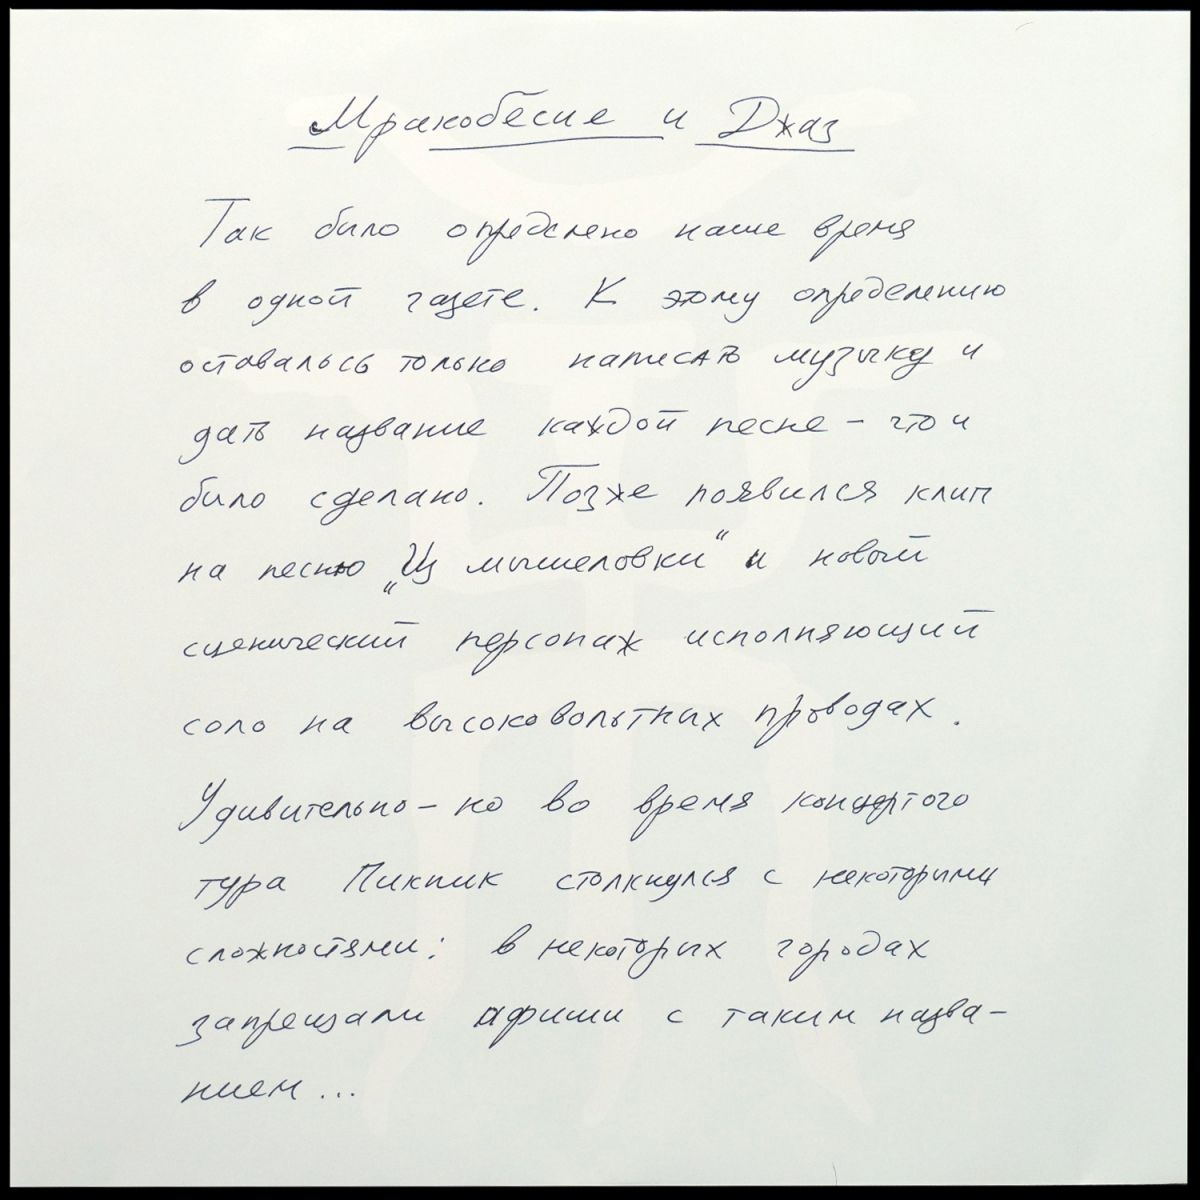 Мракобесие и Джаз
Так было определено наше время
в одной газете. К этому определению
оставалось только написать музыку и
дать название каждой песне – что и
было сделано. Позже появился клип
на песню „Из мышеловки“ и новый
сценический персонаж исполняющий
соло на высоковольтных проводах.
Удивительно – но во время концертого
тура Пикник столкнулся с некоторыми
сложностями: в некоторых городах
запрещали афиши с таким назва-
нием...